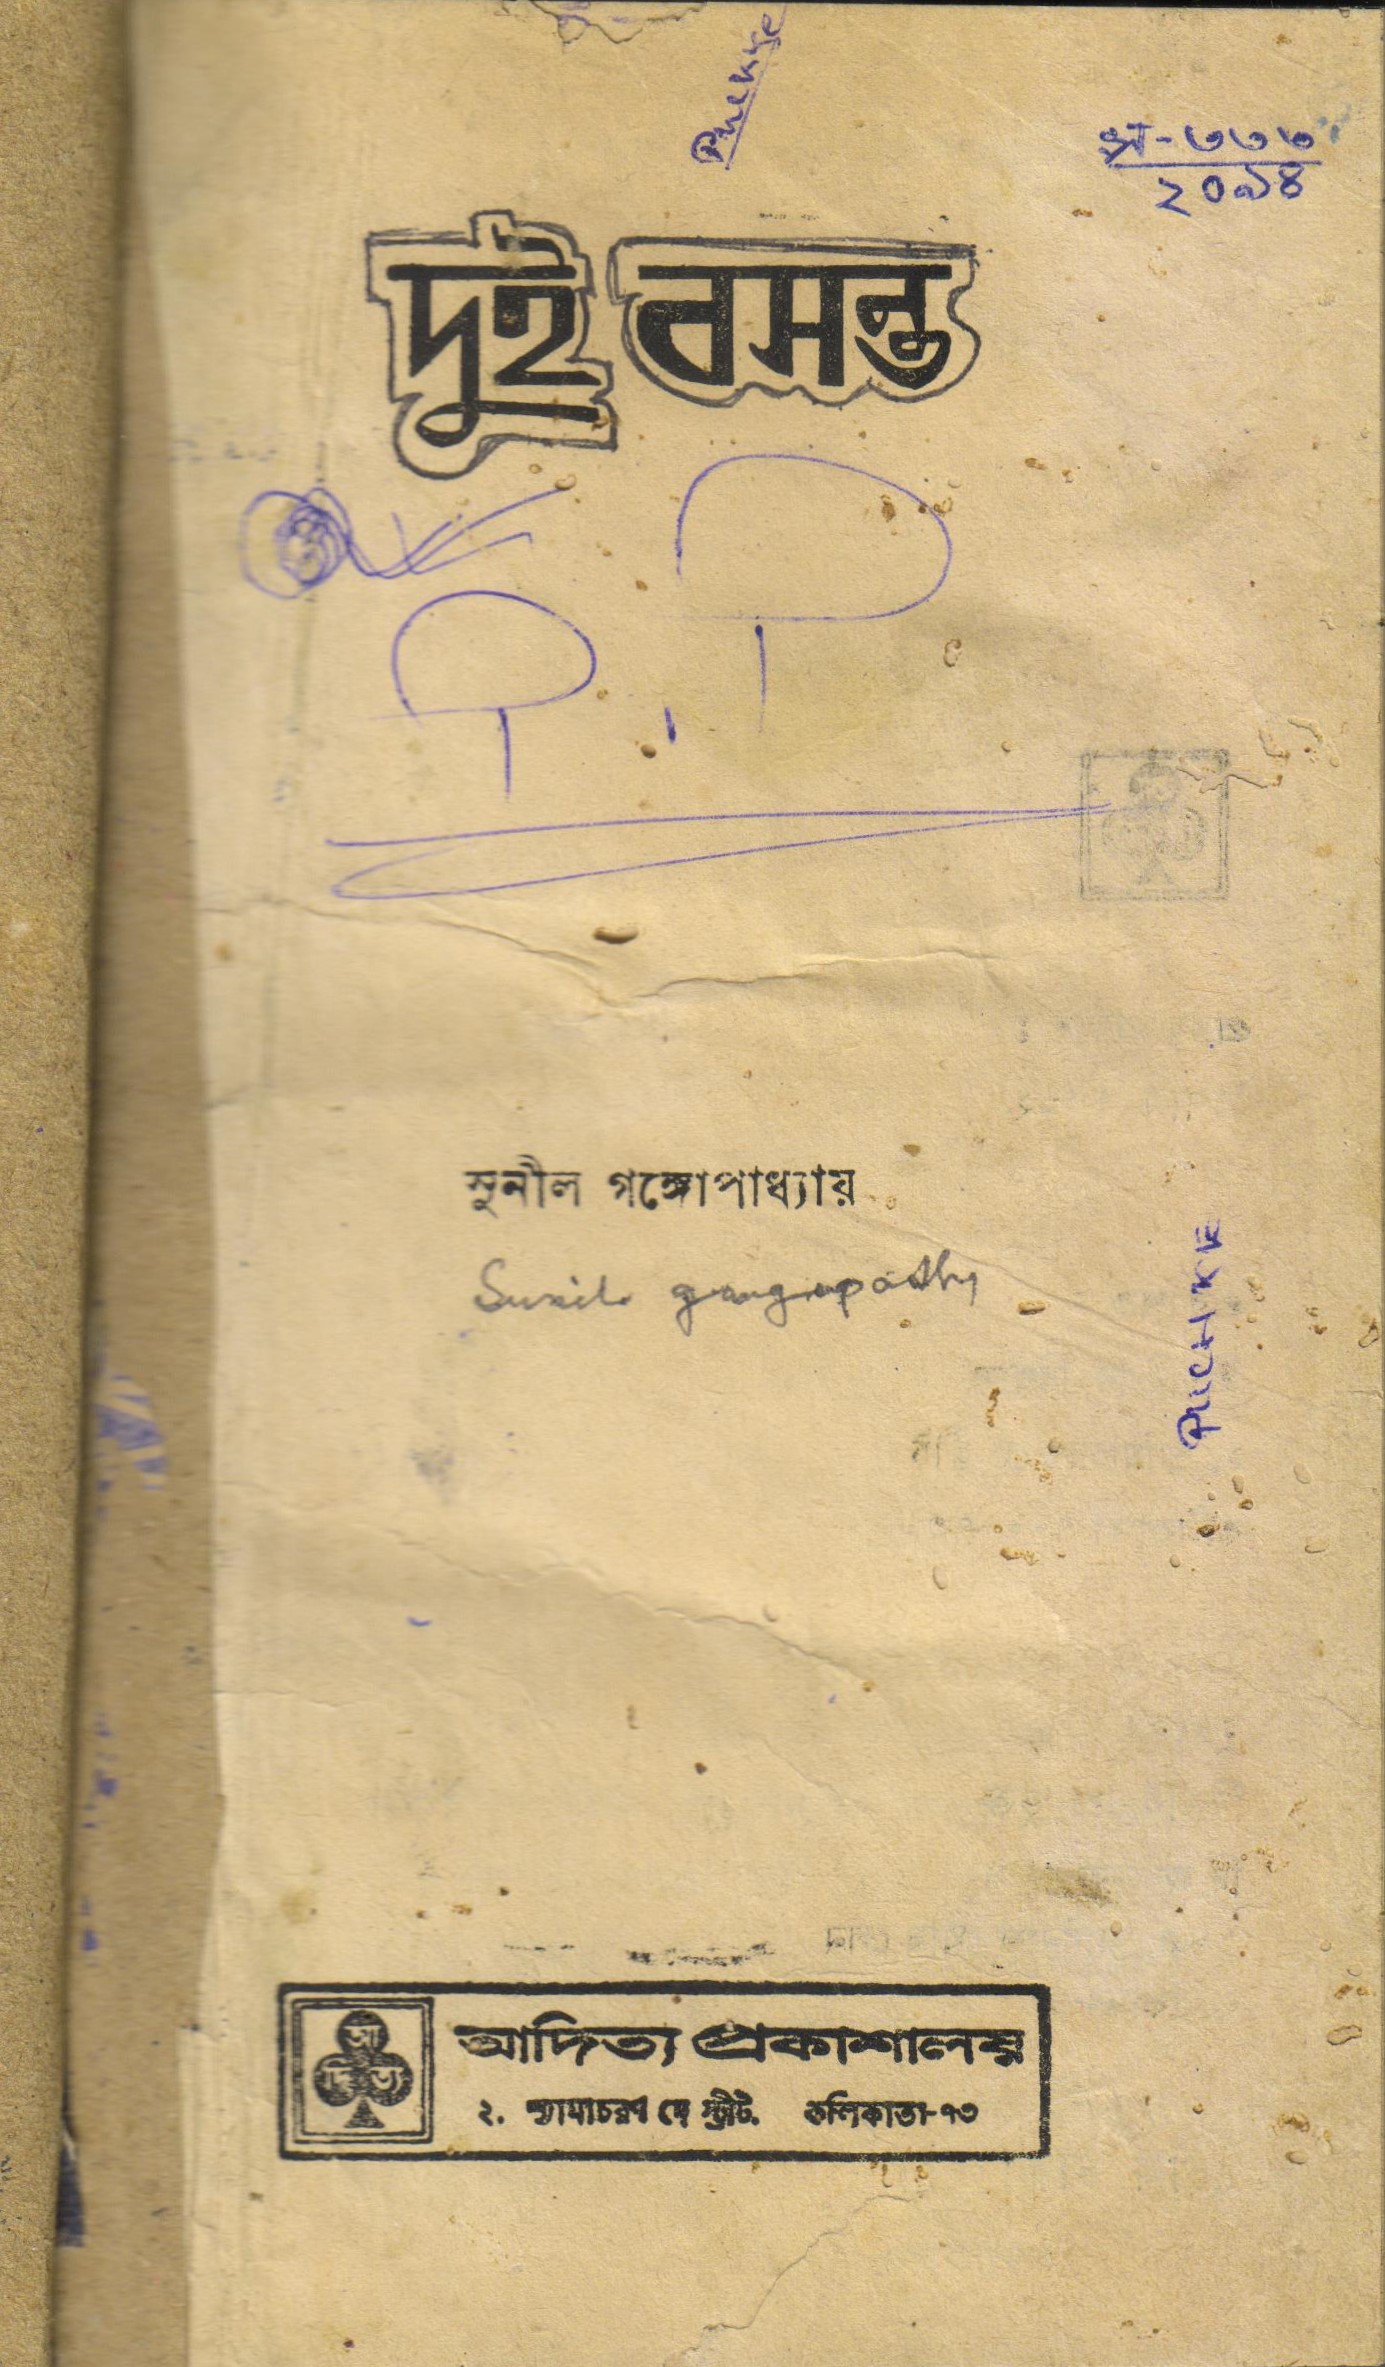 Puckye
গ্র-৩৩৩
২০৯৪
দুই বসন্ত
P.P
সুনীল গঙ্গোপাধ্যায়
Sunil gangopadhy
PUCHKE
আদিত্য
আদিত্য প্রকাশালয়
২. শ্যামাচরণ দে স্ট্রীট. কলিকাতা-৭৩